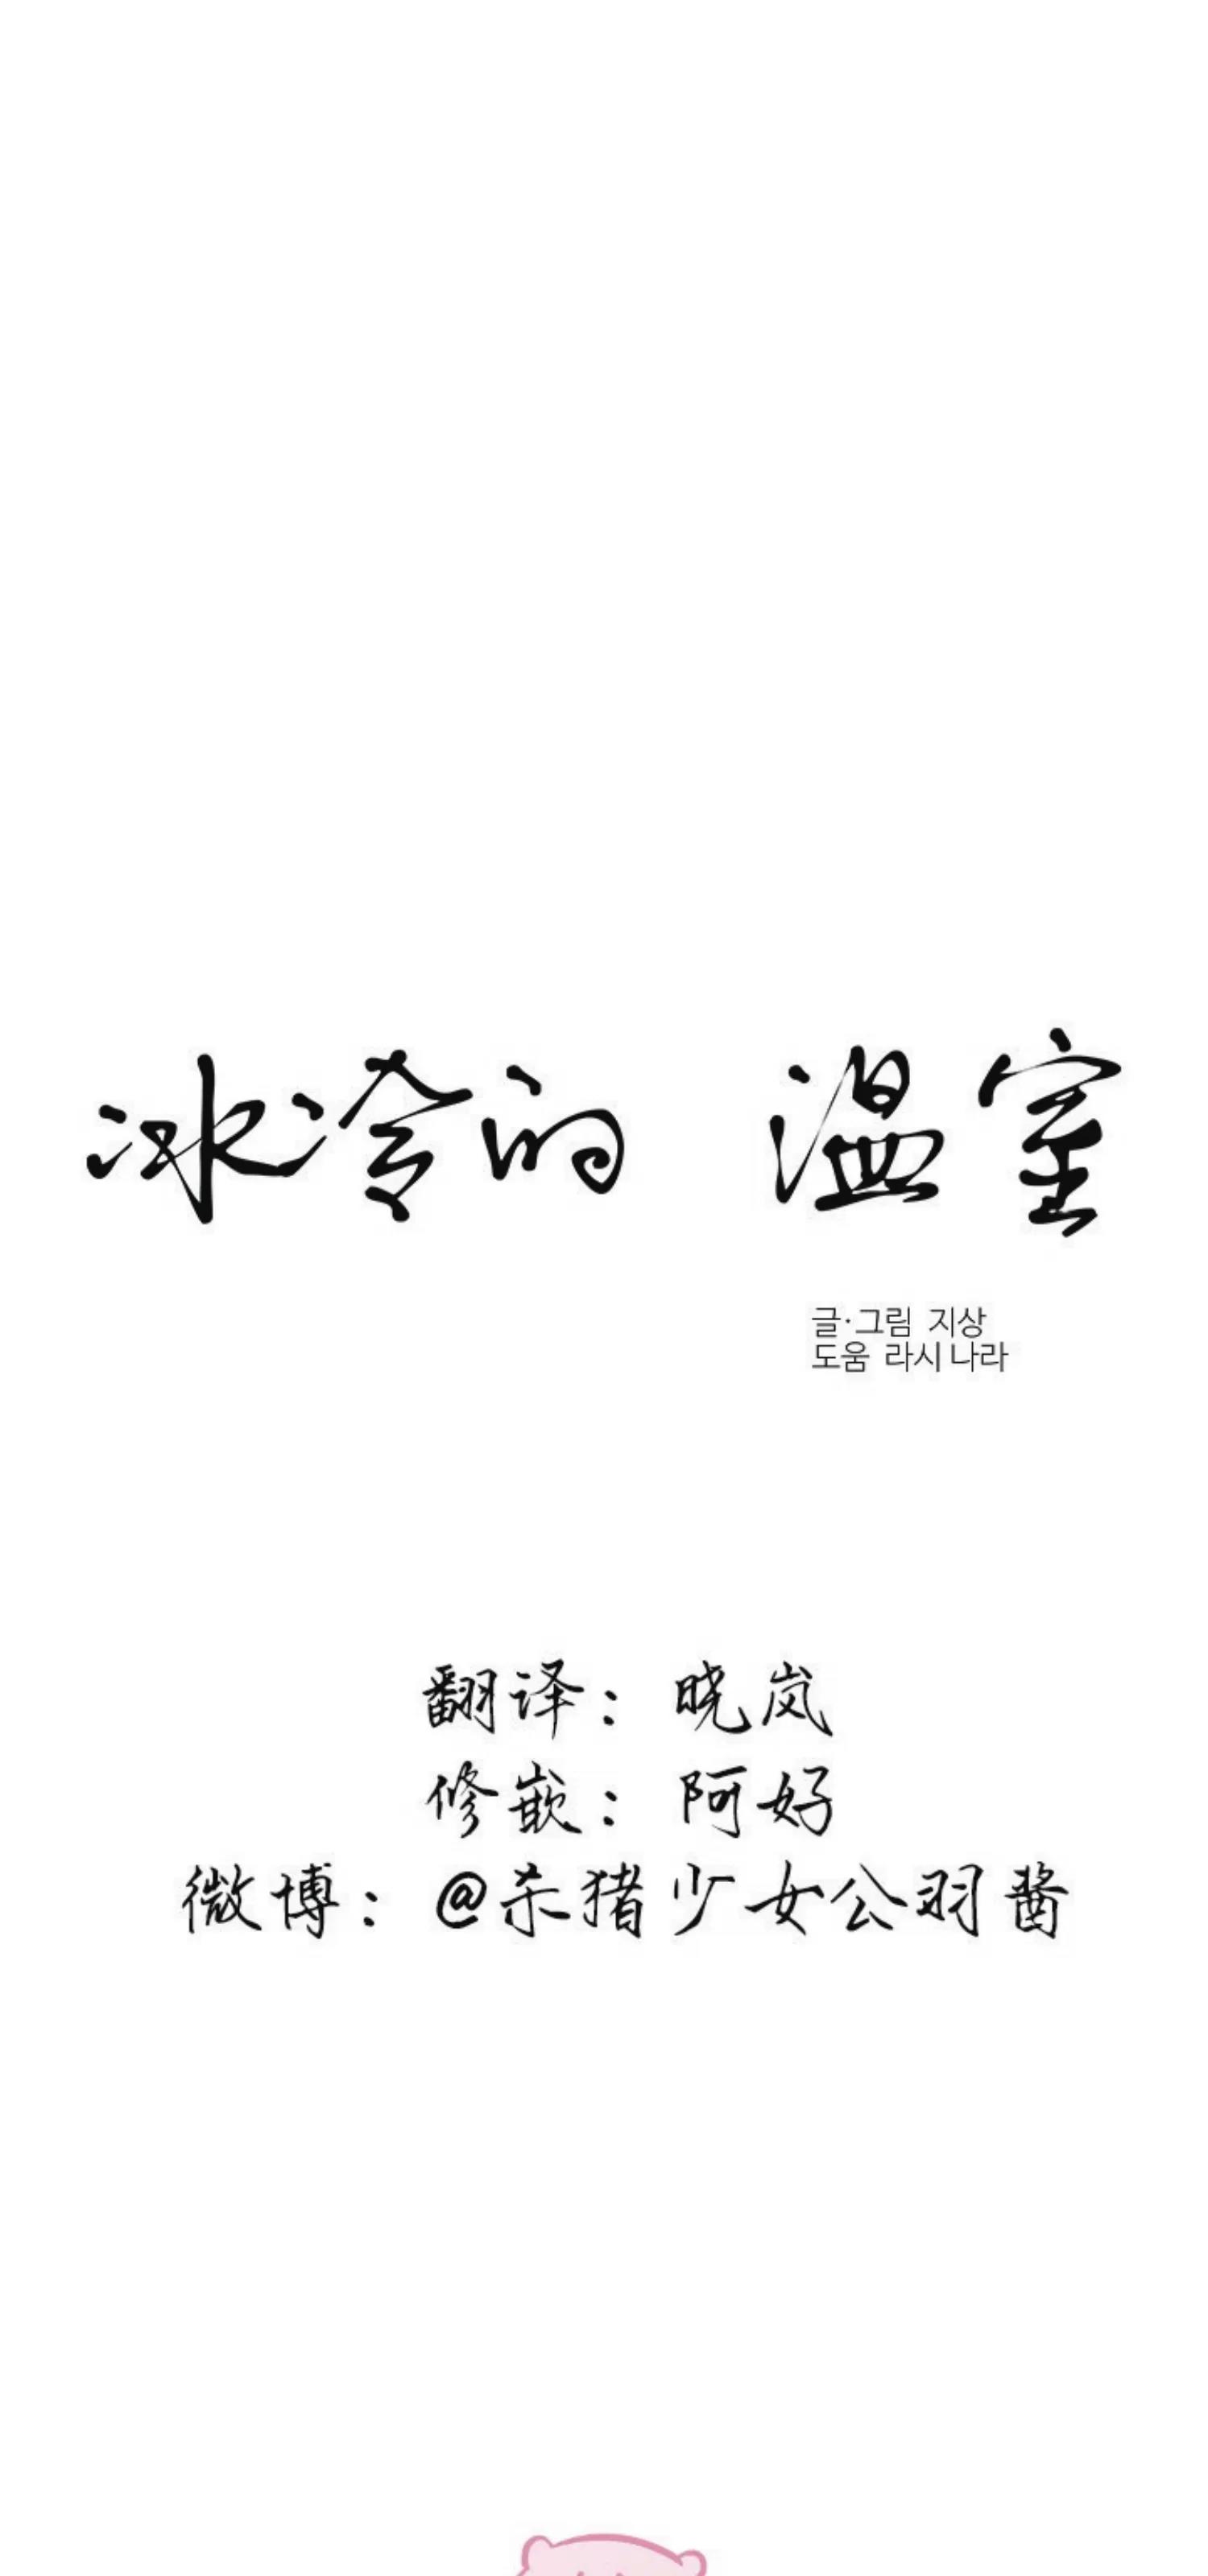 冰冷的 温室
글·그림 지상
도움 라시 나라
翻译：晓岚
修嵌：阿好
微博：@杀猪少女公羽酱